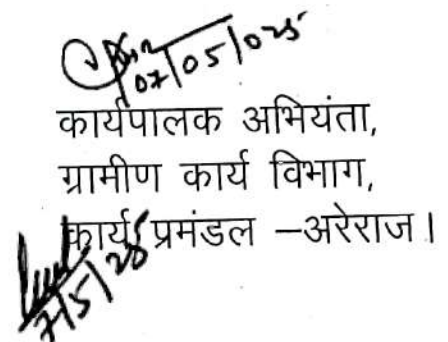 07/05/025
कार्यपालक अभियंता,
ग्रामीण कार्य विभाग,
कार्य प्रमंडल –अरेराज।
7/5/25